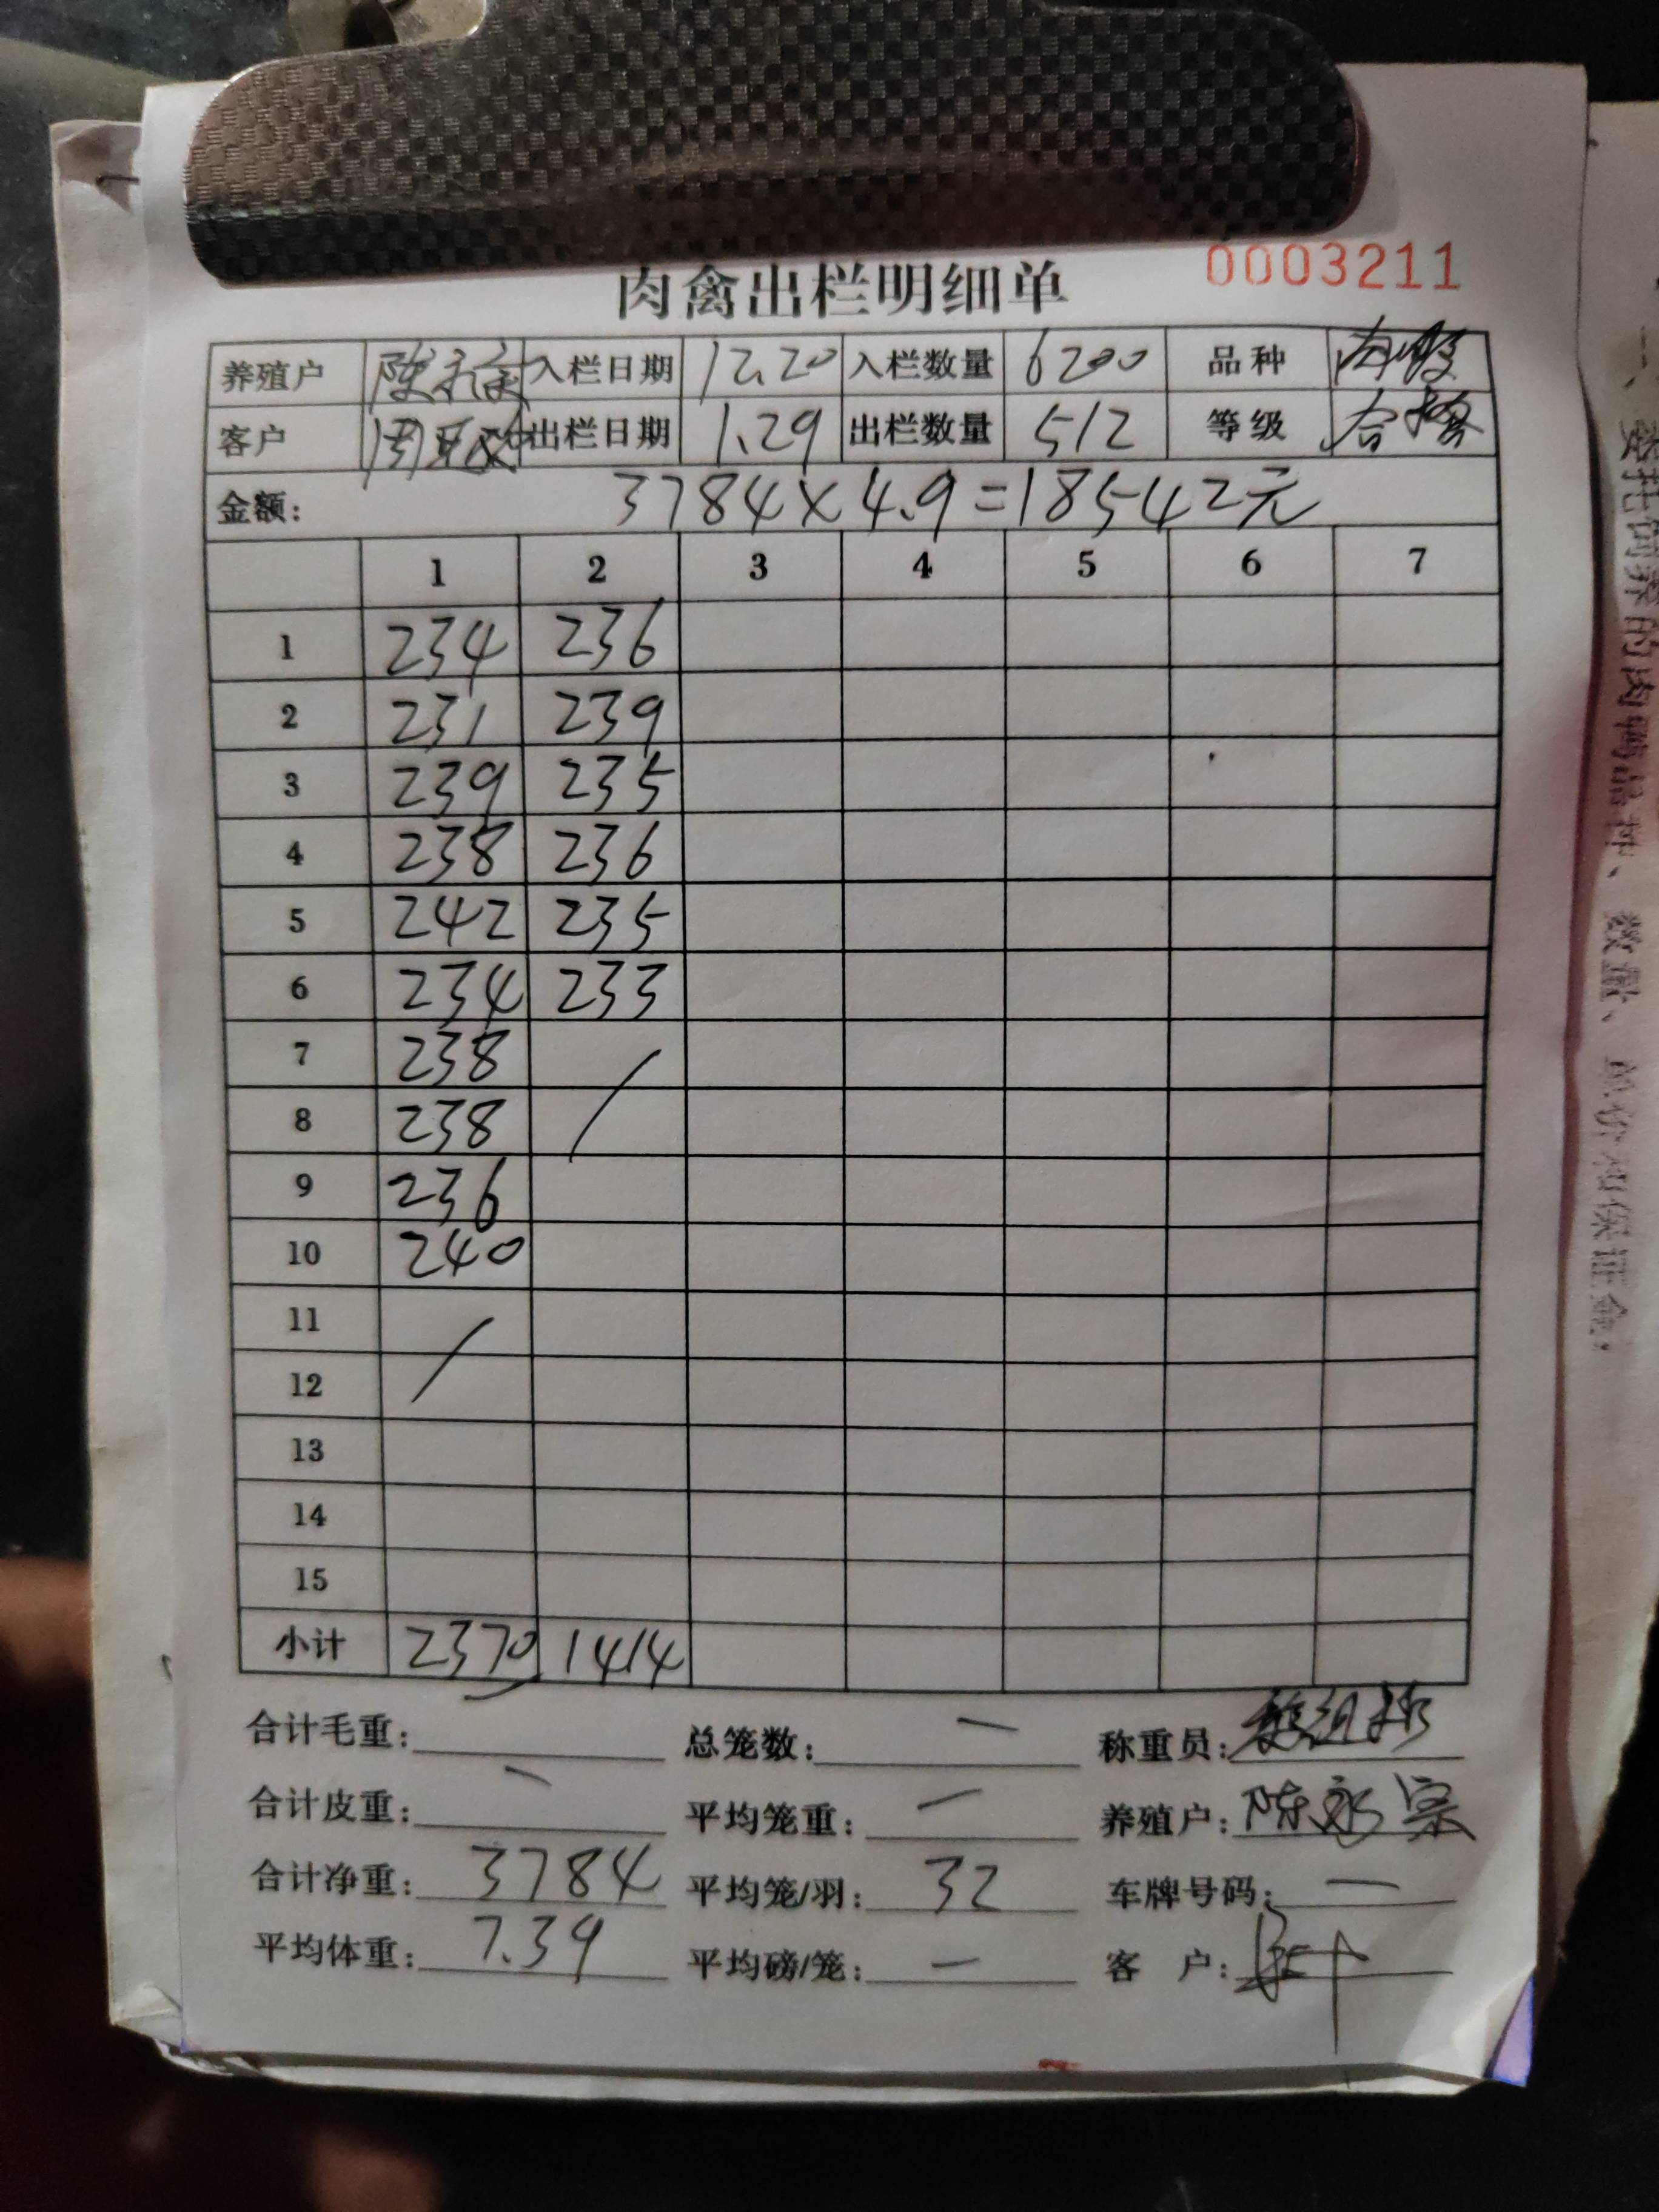 0003211
肉禽出栏明细单
养殖户 陈永宗 入栏日期 12.20 入栏数量 6200 品种 肉
客户 周 出栏日期 1.29 出栏数量 512 等级 合格
金额: 3784×4.9=18542元
1 2 3 4 5 6 7
1 234 236
2 231 239
3 239 235
4 238 236
5 242 235
6 234 233
7 238
8 238
9 236
10 240
11
12
13
14
15
小计 2370 1414
合计毛重: 总笼数: — 称重员:
合计皮重: — 平均笼重: — 养殖户: 陈永宗
合计净重: 3784 平均笼/羽: 32 车牌号码: —
平均体重: 7.39 平均磅/笼: — 客 户:
委托饲养的肉鸭品种、数量、单价和保证金,